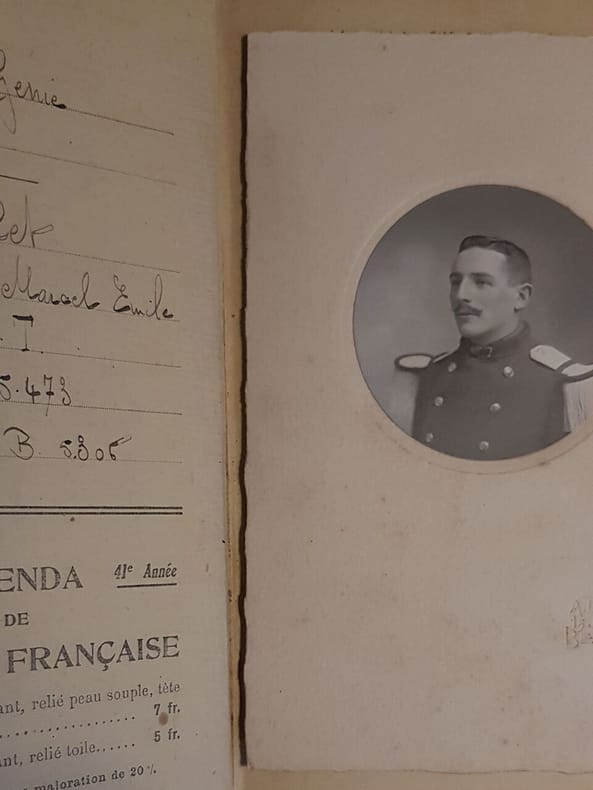 Génie
Marcel Emile
T.
5.473
B. 5.306
ENDA 41e Année
DE
FRANÇAISE
ant, relié peau souple, tête
.................. 7 fr.
ant, relié toile...... 5 fr.
majoration de 20 %